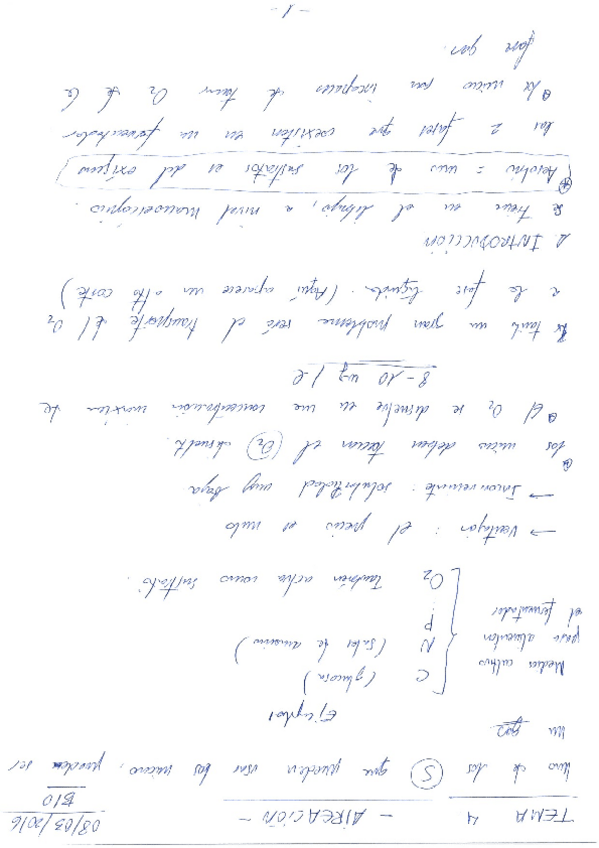 TEMA 4 - AIREACIÓN - 08/03/2016
BIO
Uno de los (S) que pueden usar los micros, pueden ser
un gas
Ejemplo!
Medios cultivo para alimentar el fermentador
C (glucosa)
N (sales de amonio)
P
:
O2 también actúa como sustrato.
→ Ventajas: el precio es nulo
→ Inconveniente: solubilidad muy baja
los micros deben tomar el (O2) disuelto.
El O2 se disuelve en una concentración máxima de
8-10 mg/l
tanto un gran problema será el transporte del O2
a la fase líquida. (Aquí aparece un alto coste)
2. INTRODUCCIÓN
Se tiene en el dibujo, a nivel macroscópico.
Aerobio = uno de los sustratos es del oxígeno
las 2 fases que coexisten en un fermentador
los micros son incapaces de tomar O2 de la
fase gas.
-1-